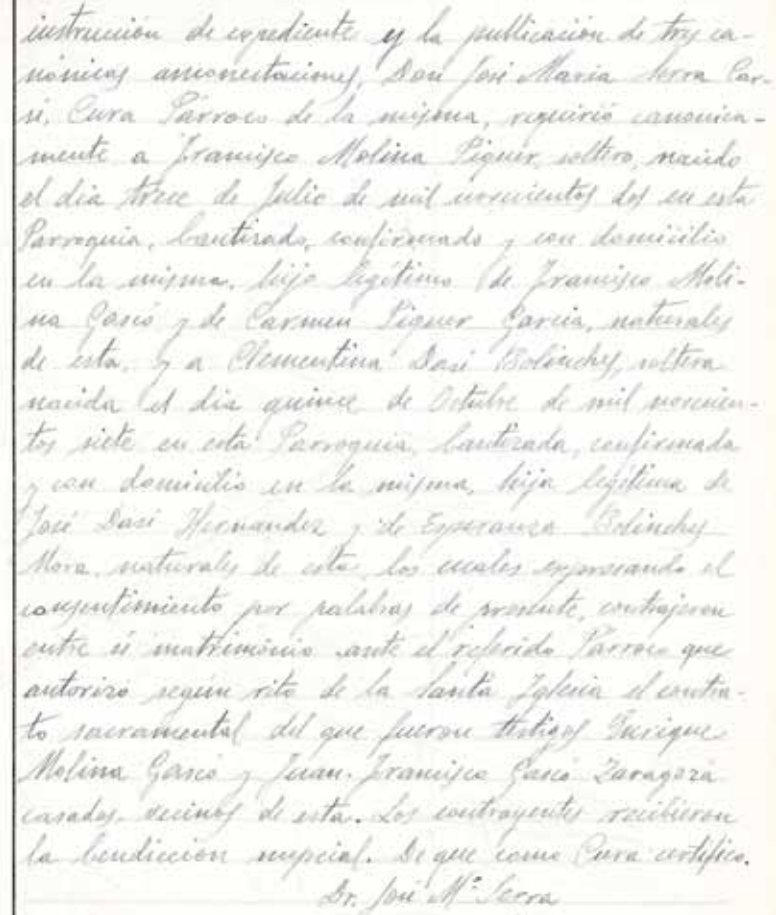 instrucción de expediente y la publicación de tres ca-
nónicas amonestaciones, Don José María Serra Car-
sí, Cura Párroco de la misma, requirió canonica-
mente a Francisco Molina Piquer, soltero, nacido
el dia trece de Julio de mil novecientos dos en esta
Parroquia, bautizado, confirmado y con domicilio
en la misma, hijo legítimo de Francisco Moli-
na Gascó y de Carmen Piquer Garcia, naturales
de esta, y a Clementina Dasí Bolinches, soltera
nacida el dia quince de Octubre de mil novecien-
tos siete en esta Parroquia, bautizada, confirmada
y con domicilio en la misma, hija legítima de
José Dasí Hernandez y de Esperanza Bolinches
Mora, naturales de esta, los cuales expresando el
consentimiento por palabras de presente, contrajeron
entre sí matrimonio ante el referido Párroco que
autorizó según rito de la Santa Iglesia el contra-
to sacramental del que fueron testigos Enrique
Molina Gascó y Juan-Francisco Gascó Zaragozá
casados, vecinos de esta. Los contrayentes recibieron
la bendición nupcial. De que como Cura certifico.
Dr. José Mª Serra